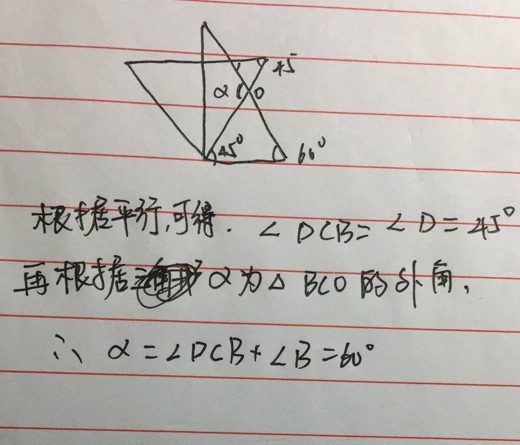 45
α
O
45°
60°
根据平行,可得. ∠DCB=∠D=45°
再根据 α为△BCO的外角,
∴ α=∠DCB+∠B=60°